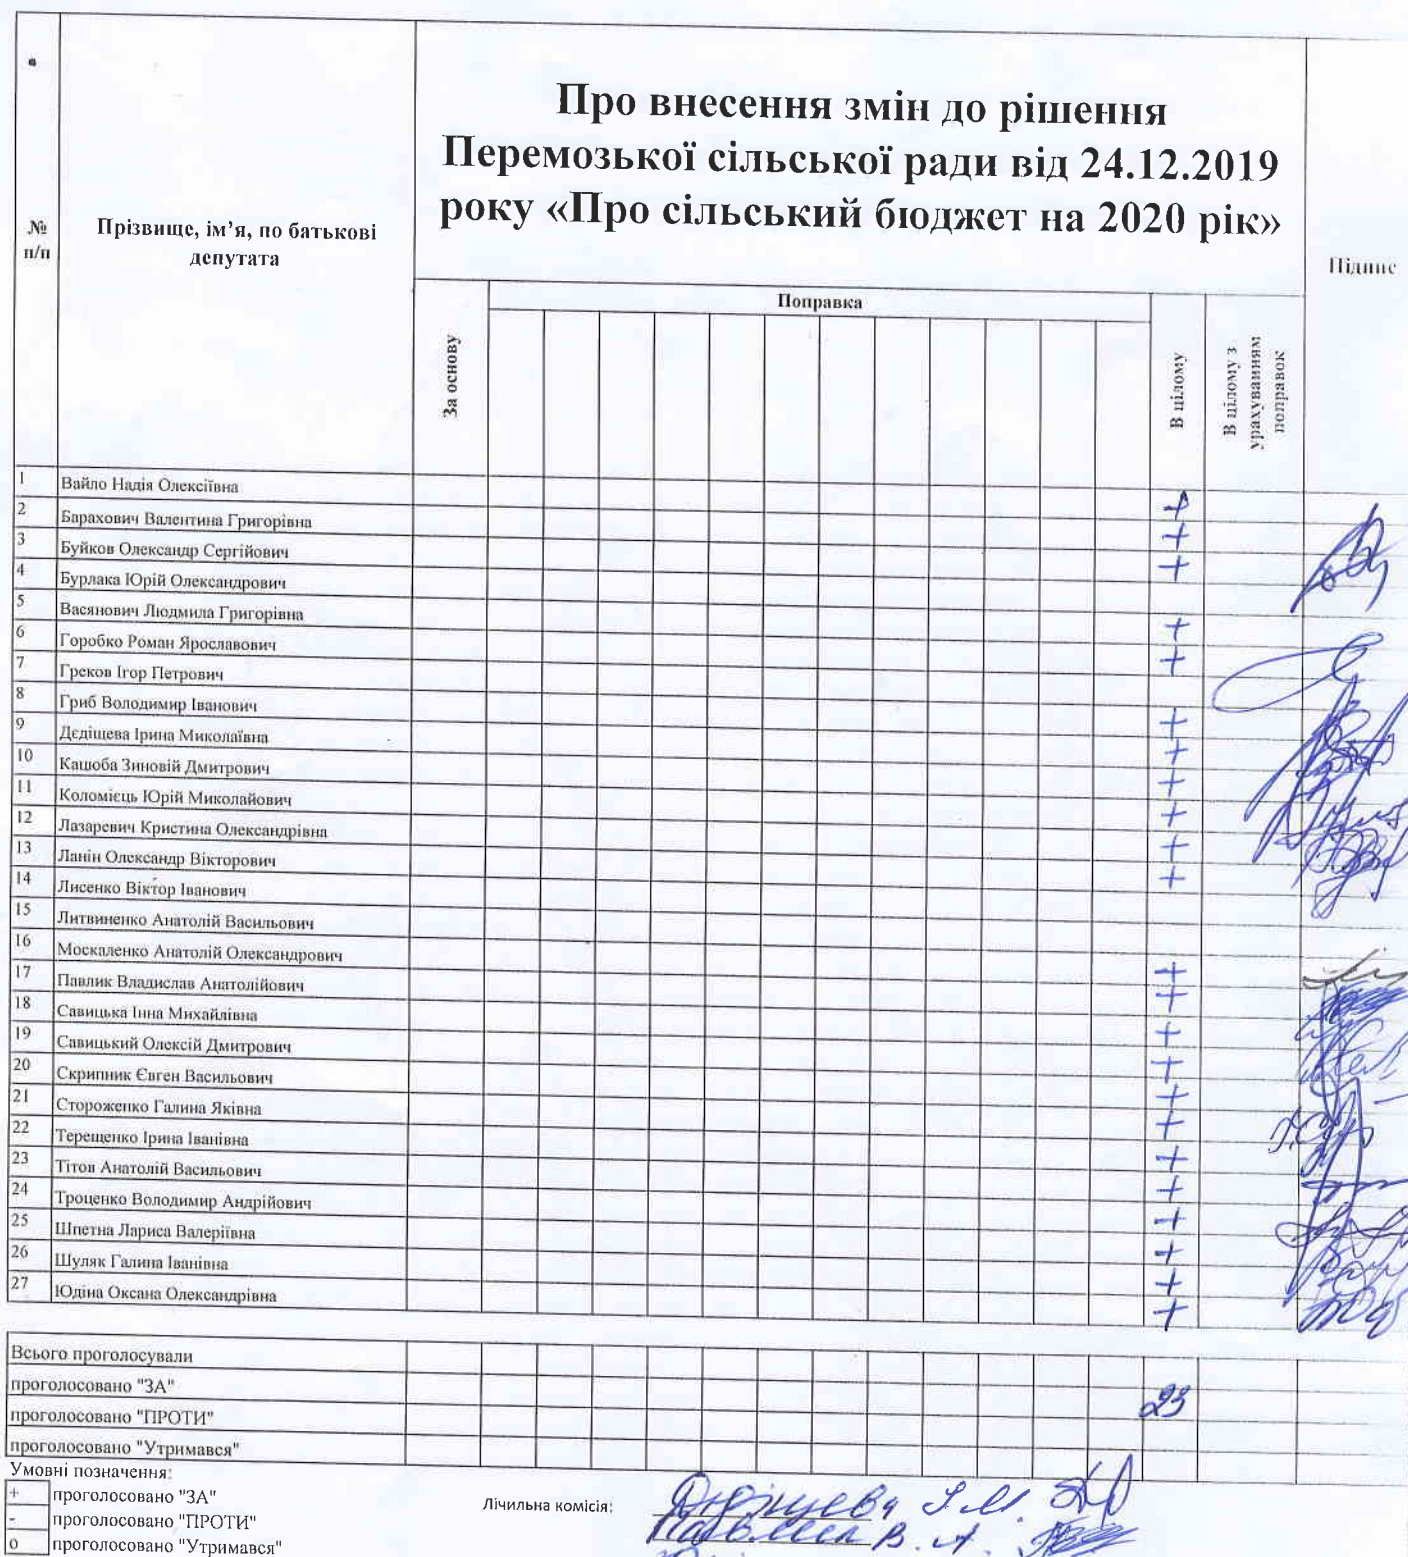 Про внесення змін до рішення
Перемозької сільської ради від 24.12.2019
року «Про сільський бюджет на 2020 рік»
№
п/п
Прізвище, ім’я, по батькові
депутата
Підпис
За основу
Поправка
В цілому
В цілому з
урахуванням
поправок
1 Вайло Надія Олексіївна +
2 Барахович Валентина Григорівна +
3 Буйков Олександр Сергійович +
4 Бурлака Юрій Олександрович
5 Васянович Людмила Григорівна +
6 Горобко Роман Ярославович +
7 Греков Ігор Петрович
8 Гриб Володимир Іванович +
9 Дєдіщева Ірина Миколаївна +
10 Кацюба Зиновій Дмитрович +
11 Коломієць Юрій Миколайович +
12 Лазаревич Кристина Олександрівна +
13 Ланін Олександр Вікторович +
14 Лисенко Віктор Іванович
15 Литвиненко Анатолій Васильович
16 Москаленко Анатолій Олександрович +
17 Павлик Владислав Анатолійович +
18 Савицька Інна Михайлівна +
19 Савицький Олексій Дмитрович +
20 Скрипник Євген Васильович +
21 Стороженко Галина Яківна +
22 Терещенко Ірина Іванівна +
23 Тітов Анатолій Васильович +
24 Троценко Володимир Андрійович +
25 Шпетна Лариса Валеріївна +
26 Шуляк Галина Іванівна +
27 Юдіна Оксана Олександрівна +
Всього проголосували
проголосовано "ЗА" 23
проголосовано "ПРОТИ"
проголосовано "Утримався"
Умовні позначення:
+ проголосовано "ЗА"
- проголосовано "ПРОТИ"
о проголосовано "Утримався"
Лічильна комісія:
Дєдіщева І.М.
Павлик В.А.